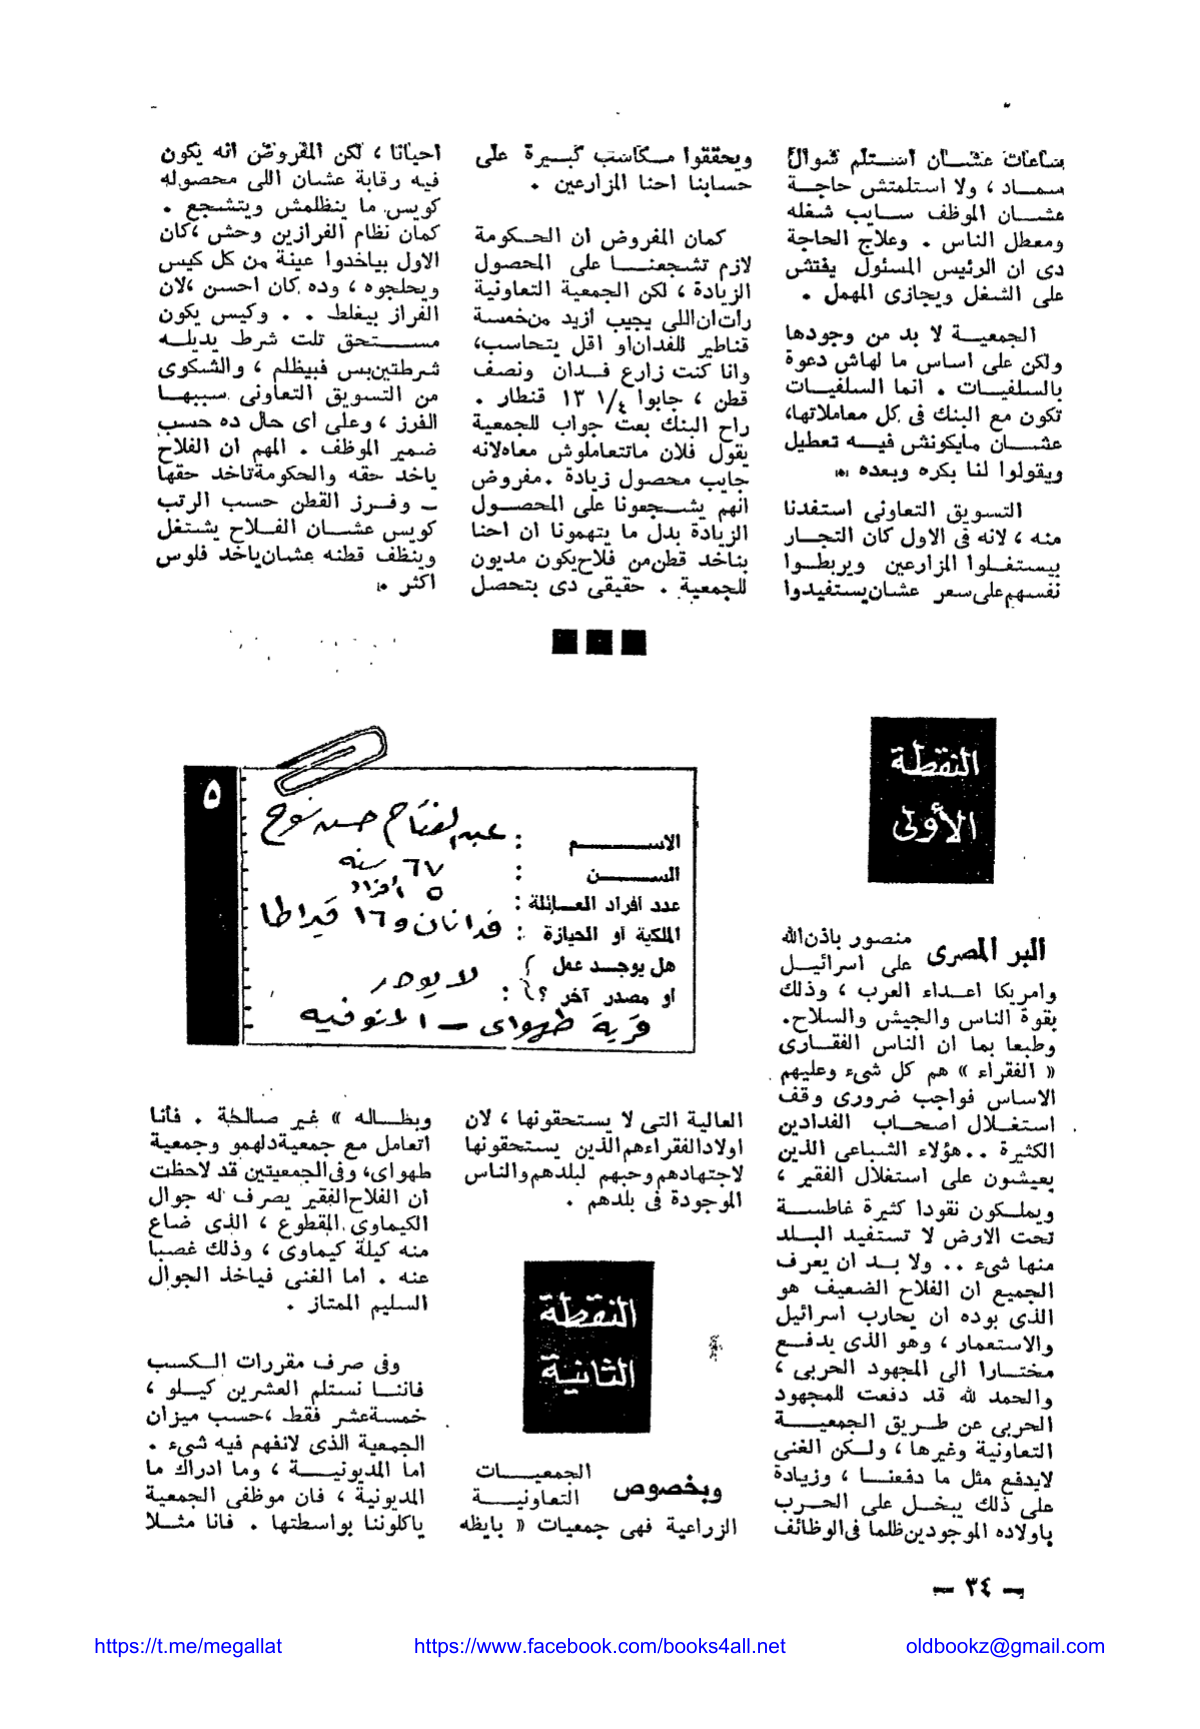 ساعات عشــان استلم شوال
سمــاد ، ولا استلمتش حاجــة
عشــان الموظف ســايب شغله
ومعطل الناس . وعلاج الحاجة
دى ان الرئيس المسئول يفتش
على الشغل ويجازى المهمل .
الجمعيــة لا بد من وجودها
ولكن على اساس ما لهاش دعوة
بالسلفيــات . انما السلفيــات
تكون مع البنك فى كل معاملاتها،
عشــان مايكونش فيــه تعطيل
ويقولوا لنا بكره وبعده .
التسويق التعاونى استفدنا
منه ، لانه فى الاول كان التجــار
بيستغـلوا المزارعين ويربطــوا
نفسهم على سعر عشان يستفيدوا
ويحققوا مـكاسب كبـيرة على
حسابنا احنا المزارعين .
كمان المفروض ان الحـكومة
لازم تشـجعنــا على المحصول
الزيادة ، لكن الجمعية التعاونية
رأت ان اللى يجيب ازيد من خمسة
قناطير للفدان او اقل يتحاسب،
وانا كنت زارع فـدان ونصف
قطن ، جابوا ١/٤ ١٣ قنطار .
راح البنك بعت جواب للجمعية
يقول فلان ماتتعاملوش معاه لانه
جايب محصول زيادة . مفروض
انهم يشـجعونا على المحصـول
الزيادة بدل ما يتهمونا ان احنا
بناخد قطن من فلاح يكون مديون
للجمعية . حقيقى دى بتحصل
احيانا ، لكن المفروض انه يكون
فيه رقابة عشـان اللى محصوله
كويس ما ينظلمش ويتشجع .
كمان نظام الفرازين وحش ، كان
الاول بياخدوا عينة مـن كل كيس
ويحلجوه ، وده كان احسن ، لان
الفراز بيغلط . . وكيس يكون
مســتحق تلت شرط يديلــه
شرطتين بس فبيظلم ، والشكوى
من التسويق التعاونى سببهــا
الفرز ، وعلى اى حال ده حسب
ضمير الموظف . المهم ان الفلاح
ياخد حقه والحكومة تاخد حقها
ــ وفـرز القطن حسب الرتب
كويس عشــان الفـلاح يشـتغل
وينظف قطنه عشان ياخد فلوس
اكثر .
النقطة
الأولى
٥
الاســـــم : عبد الفتاح حسن نوح
الســـــن : ٦٧ سنه
عدد أفراد العــائلة : ٥ افراد
الملكية أو الحيازة : فدانان و١٦ قيراطا
هل يوجـد عمل
أو مصدر آخر ؟ : لا يوجد
قرية طهواى – المنوفيه
البر المصرى منصور باذن الله
على اسرائيـل
وامريكا اعـداء العرب ، وذلك
بقوة الناس والجيش والسلاح.
وطبعا بما ان الناس الفقـارى
« الفقراء » هم كل شىء وعليهم
الاساس فواجب ضرورى وقف
استغـلال اصحـاب الفدادين
الكثيرة . . هؤلاء الشباعى الذين
يعيشون على استغلال الفقير ،
ويملـكون نقودا كثيرة غاطســة
تحت الارض لا تستفيد البــلد
منها شىء . . ولا بــد ان يعرف
الجميع ان الفلاح الضعيف هو
الذى بوده ان يحارب اسرائيل
والاستعمار ، وهو الذى يدفـع
مختـارا الى المجهود الحربى ،
والحمد لله قد دفعت للمجهود
الحربى عن طـريق الجمعيــة
التعاونية وغيرها ، ولـكن الغنى
لايدفع مثل ما دفعنــا ، وزيادة
على ذلك يبخــل على الحـرب
باولاده الموجودين ظلما فى الوظائف
العالية التى لا يستحقونها ، لان
اولاد الفقراء هم الذين يستحقونها
لاجتهادهم وحبهم لبلدهم والناس
الموجودة فى بلدهم .
النقطة
الثانية
وبخصوص الجمعيــات
التعاونيــة
الزراعية فهى جمعيات « بايظه
وبطــاله » غير صـالحة . فأنا
اتعامل مع جمعية دلهمو وجمعية
طهواى، وفى الجمعيتين قد لاحظت
ان الفلاح الفقير يصرف له جوال
الكيماوى المقطوع ، الذى ضاع
منه كيلة كيماوى ، وذلك غصبا
عنه . اما الغنى فياخذ الجوال
السليم الممتاز .
وفى صرف مقررات الـكسب
فاننــا نستلم العشرين كيـلو ،
خمسة عشر فقط ، حسب ميزان
الجمعية الذى لانفهم فيه شىء .
اما المديونيــة ، وما ادراك ما
المديونية ، فان موظفى الجمعية
ياكلوننا بواسطتها . فانا مثــلا
– ٣٤ –
https://t.me/megallat
https://www.facebook.com/books4all.net
oldbookz@gmail.com